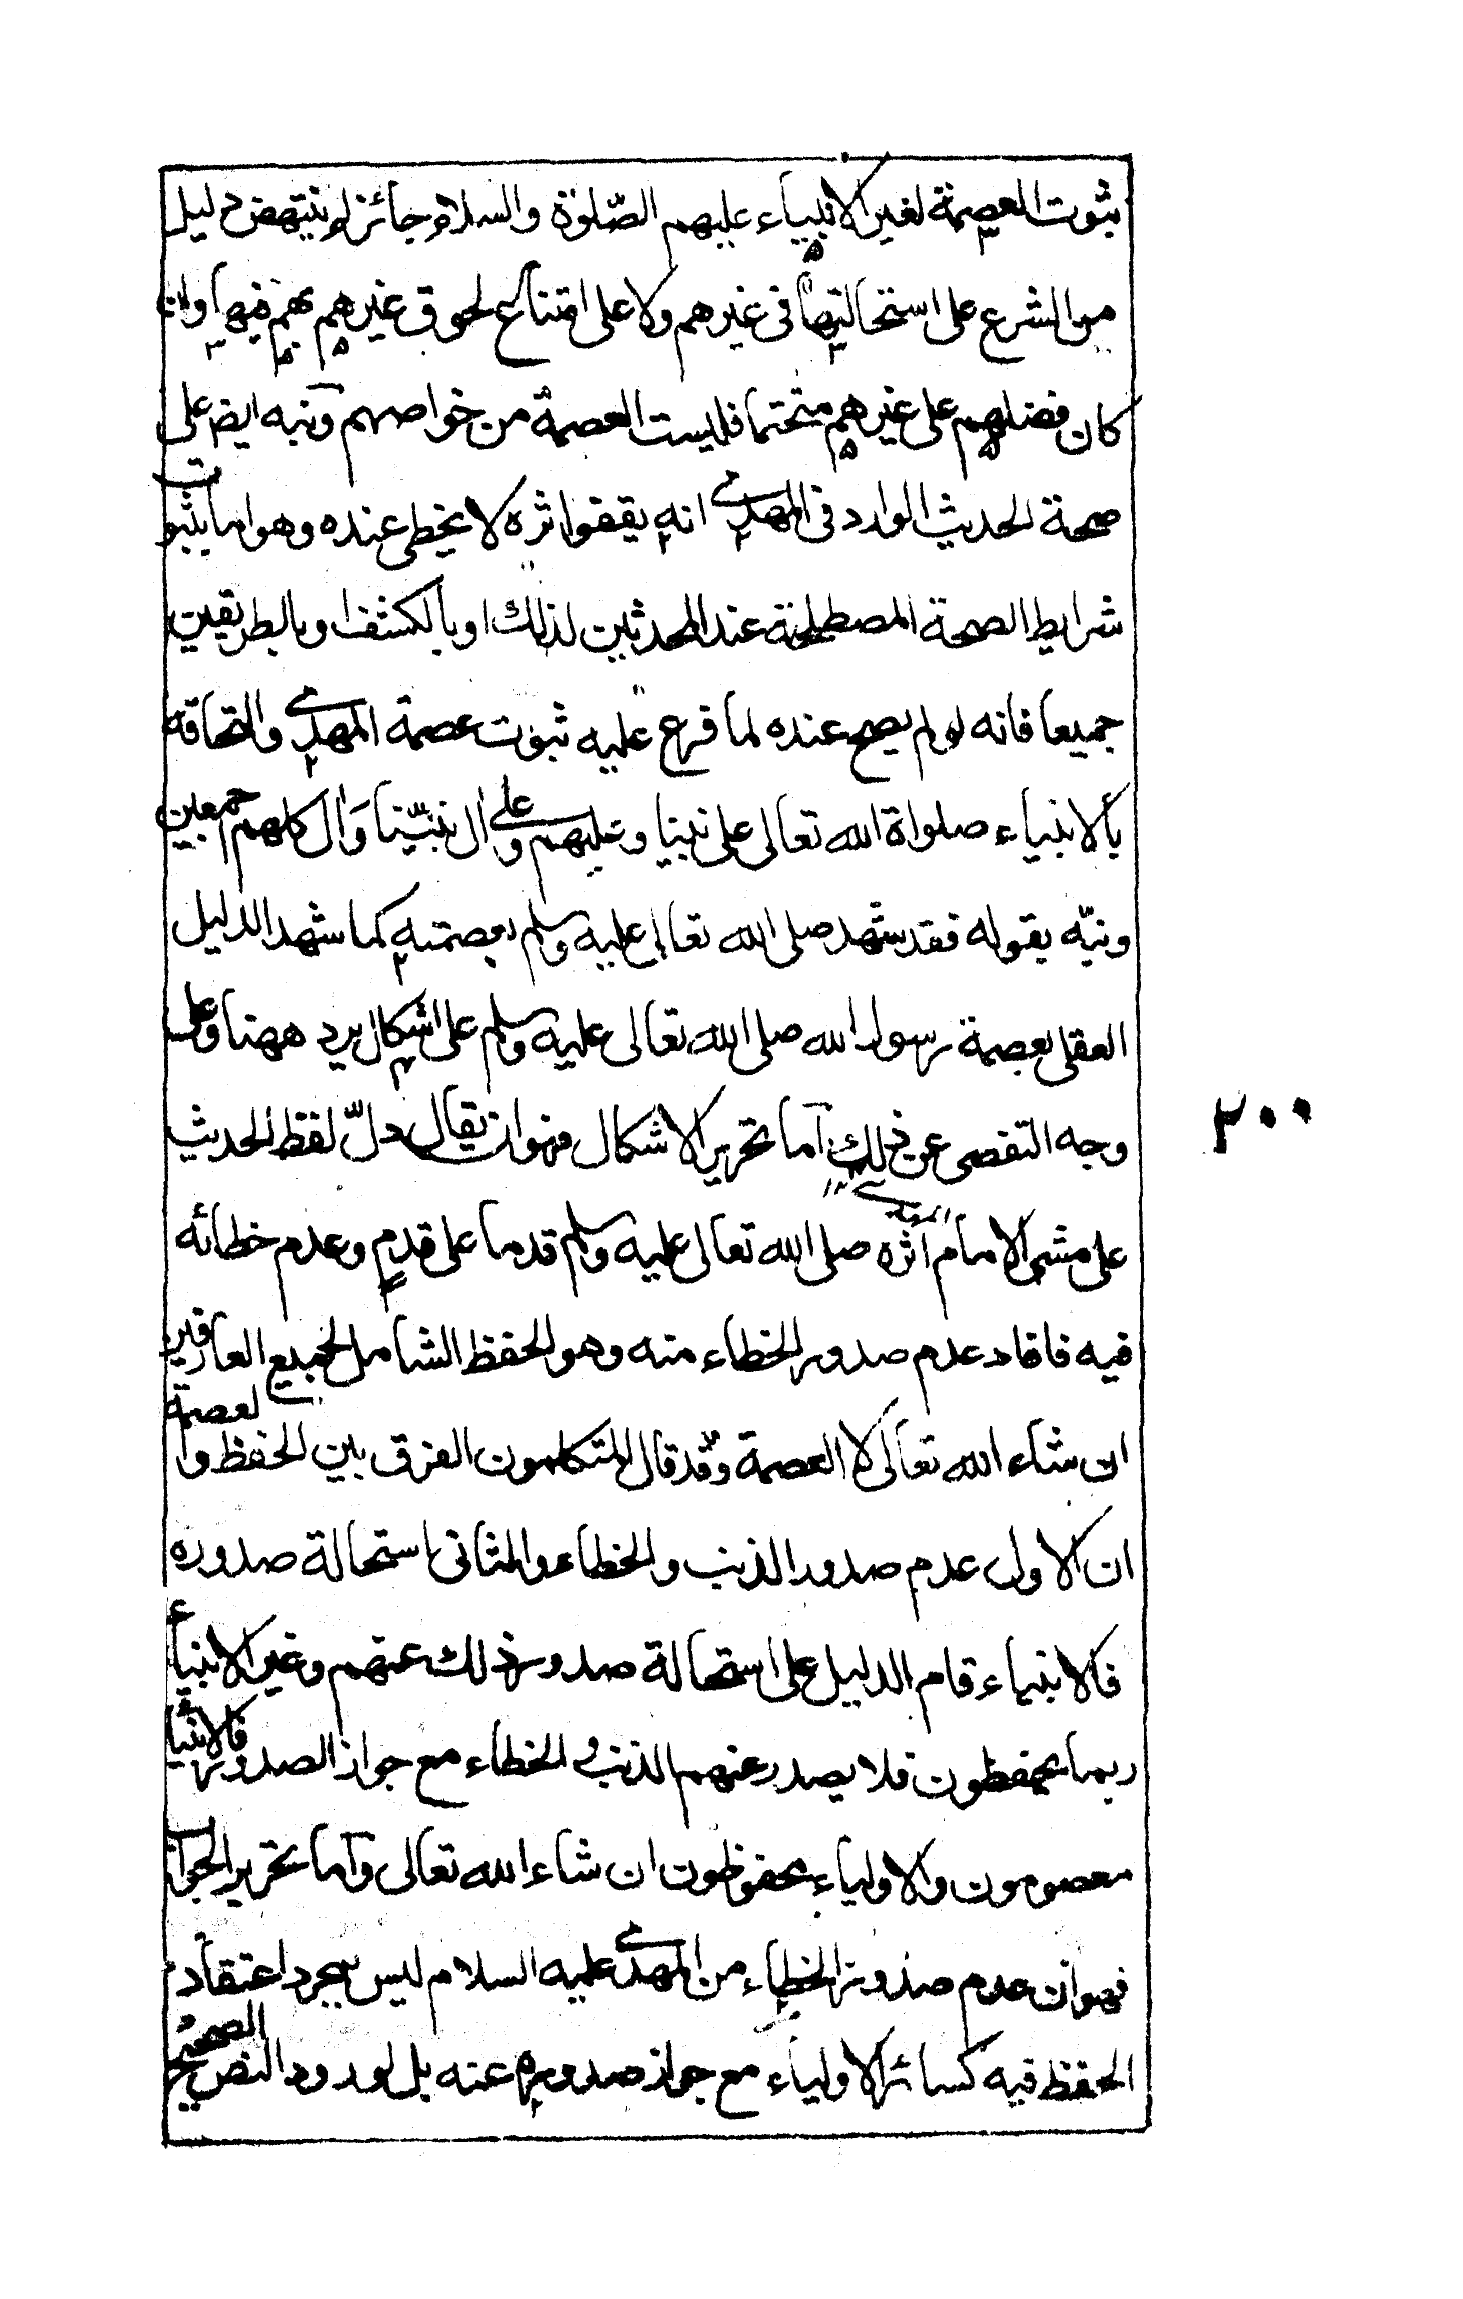 ثبوت العصمة لغير الانبياء عليهم الصّلوة والسلام جائز لم ينتهض دليل
من الشرع على استحالتها فى غيرهم ولا على امتناع لحوق غيرهم بهم فيها وان
كان فضلهم على غيرهم متحتما فليست العصمة من خواصهم ونبه ايض على
صحة الحديث الوارد فى المهدى انه يقفوا اثره لا يخطى عنده وهو اما بثبوت
شرايط الصحة المصطلحة عند المحدثين لذلك او بالكشف او بالطريقين
جميعا فانه لو لم يصح عنده لما فرع عليه ثبوت عصمة المهدى والتحاقه
بالانبياء صلواة الله تعالى على نبينا وعليهم وعلى ال نبيّنا وَال كلهم جمعين
ونبّه بقوله فقد شهد صلى الله تعالى عليه وسلم بعصمته كما شهد الدليل
العقلى بعصمة رسول الله صلى الله تعالى عليه وسلم على اشكال يرد ههنا وعلى
وجه التفصى عن ذلك اما تحرير الاشكال فهو ان يقال دلّ لفظ الحديث
٢٠٠
على مشى الامام المهدى اثره صلى الله تعالى عليه وسلم قدما على قدمٍ وعدم خطائه
فيه فافاد عدم صدور الخطاء منه وهو الحفظ الشامل لجميع العارفين
ان شاء الله تعالى لا العصمة وقد قال المتكلمون الفرق بين الحفظ والعصمة
ان الاول عدم صدور الذنب والخطاء والثانى استحالة صدوره
فالانبياء قام الدليل على استحالة صدور ذلك عنهم وغير الانبياء
ربما يحفظون فلا يصدر عنهم الذنب والخطاء مع جواز الصدور فالانبياء
معصومون والاولياء محفوظون ان شاء الله تعالى واما تحرير الجواب
فهو ان عدم صدور الخطاء من المهدى عليه السلام ليس بمجرد اعتقاد
الحفظ فيه كسائر الاولياء مع جواز صدوره عنه بل لورود النص الصحيح